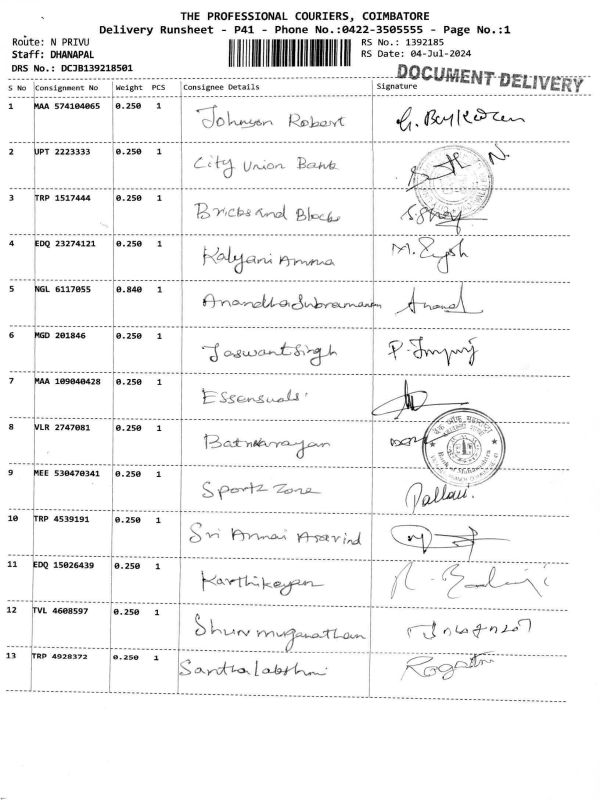 THE PROFESSIONAL COURIERS, COIMBATORE
Delivery Runsheet - P41 - Phone No.:0422-3505555 - Page No.:1
Route: N PRIVU RS No.: 1392185
Staff: DHANAPAL RS Date: 04-Jul-2024
DRS No.: DCJB139218501
DOCUMENT DELIVERY
S No Consignment No Weight PCS Consignee Details Signature
1 MAA 574104065 0.250 1 Johnson Robert
2 UPT 2223333 0.250 1 City Union Bank N.
3 TRP 1517444 0.250 1 Bricks and Blocks
4 EDQ 23274121 0.250 1 Kalyani Amma
5 NGL 6117055 0.840 1 Anandha Subramanian Anand
6 MGD 201846 0.250 1 Jaswant Singh
7 MAA 109040428 0.250 1 Essensuals
8 VLR 2747081 0.250 1
Bank of Maharashtra
9 MEE 530470341 0.250 1 Sportz Zone Pallavi.
10 TRP 4539191 0.250 1 Sri Annai Aravind
11 EDQ 15026439 0.250 1 Karthikeyan
12 TVL 4608597 0.250 1 Shunmuganathan
13 TRP 4928372 0.250 1 Santhalakshmi